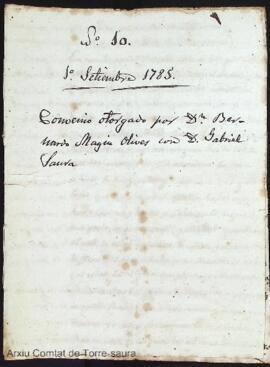 Nº 10.
1º Setiembre 1785.
Convenio otorgado por Dn Ber-
nardo Magin Olives con D. Gabriel
Saura
Arxiu Comtat de Torre-saura